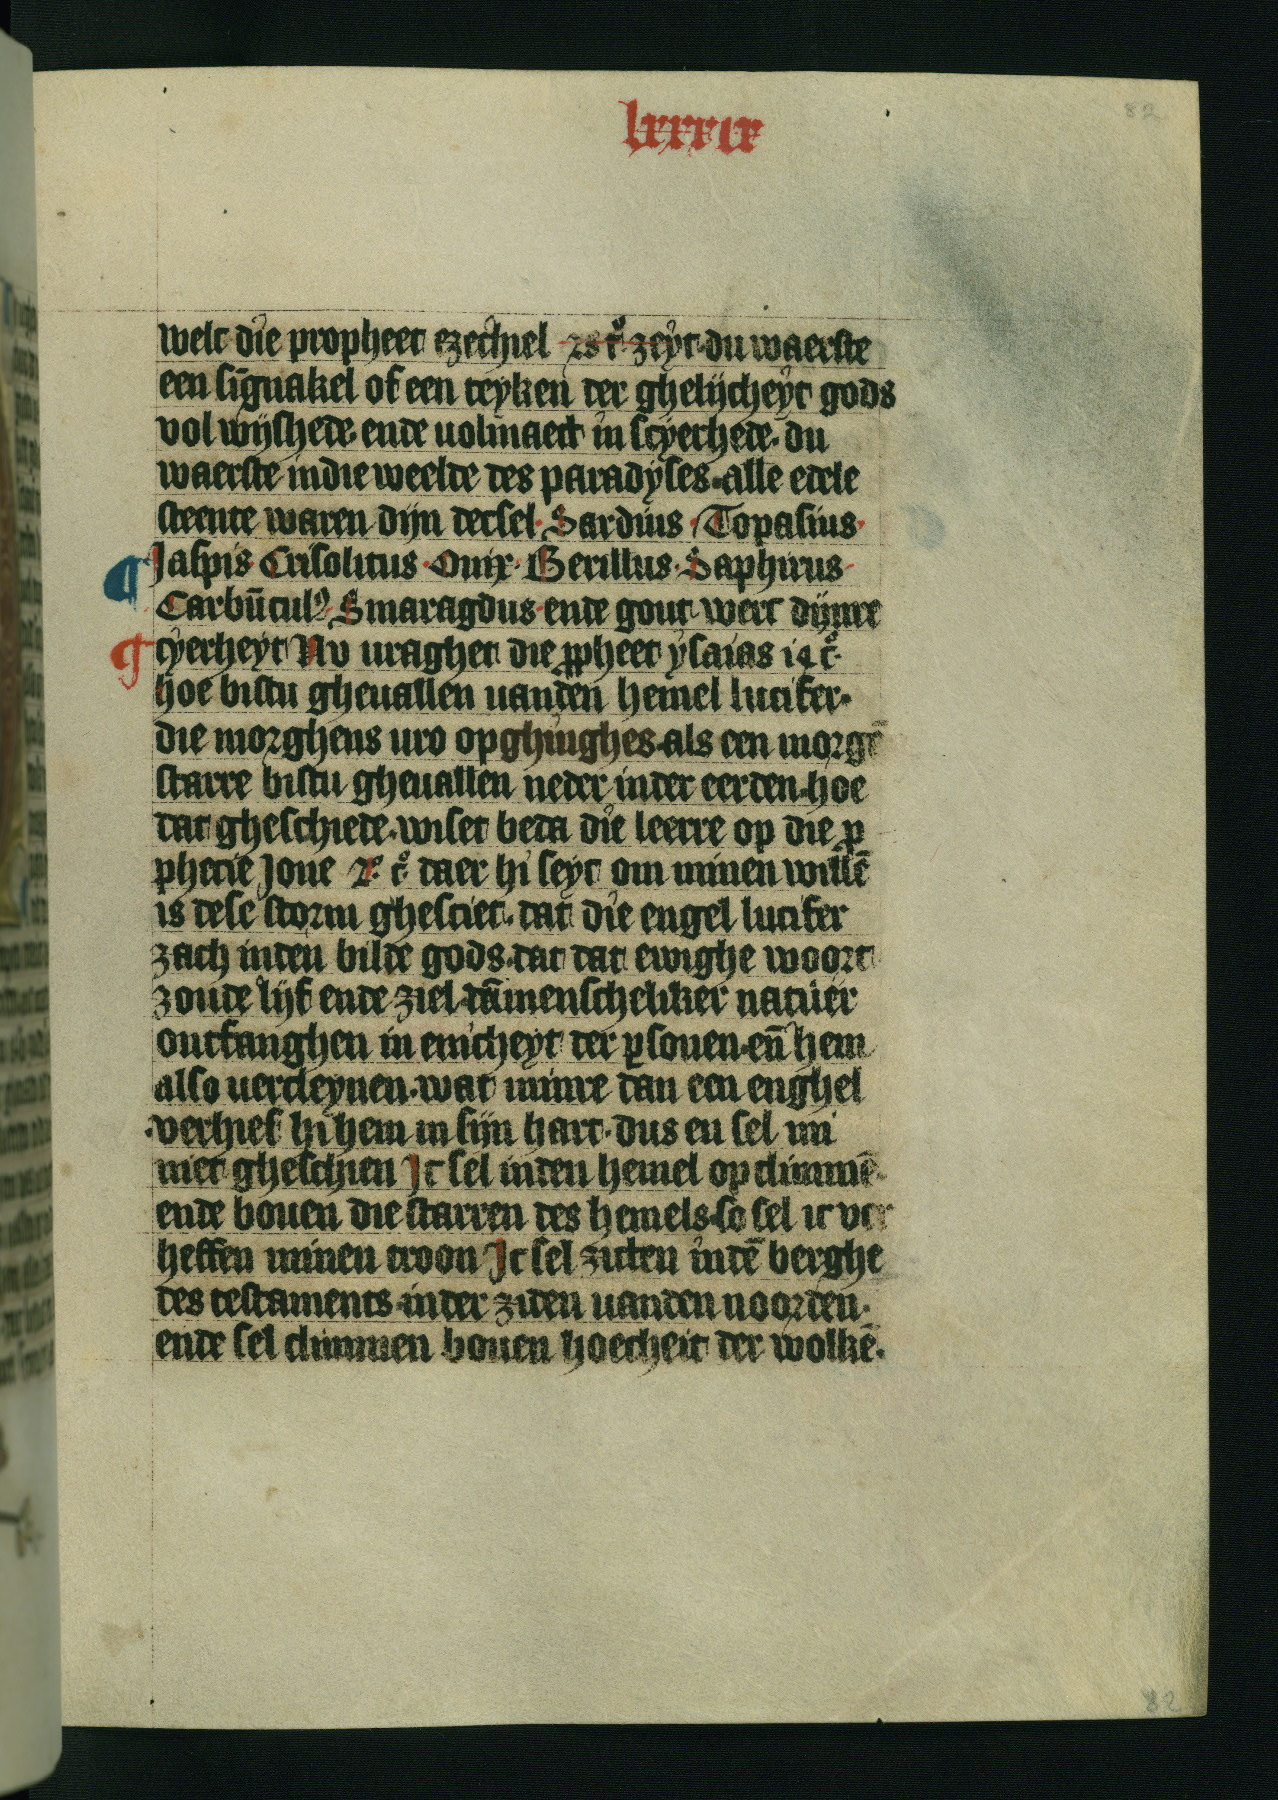 lxxxix
82
welc die propheet ezechiel 28 c̊ zeyt. du waerste
een signakel of een teyken der ghelijcheyt gods
vol wijshede. ende volmaect in scyerhede. du
waerste in die weelde des paradyses. alle edele
steente waren dijn decsel. Sardius. Topasius.
¶ Jaspis Crisolitus. Onix. Berillus. Saphirus
Carbūculꝰ. Smaragdus. ende gout wert dijnre
¶ cyerheyt Nv uraghet die ꝓpheet ysaias 14 c̊.
hoe bistu gheuallen uanden hemel lucifer.
die morghens uro opghinghes. als een morgē
starre bistu gheuallen neder in der eerden. hoe
dat gheschiede. wiset beda die leerre op die ꝓ
phecie Jone 2. c̊ daer hi seyt om minen willē
is dese storm ghesciet. dat die engel lucifer
zach in den bilde gods. dat dat ewighe woort
zoude lijf ende ziel dā menscheliker natuer
ontfanghen in enicheyt der ꝑsonen. eñ hem
also uercleynen. wat minre dan een enghel
verhief hi hem in sijn hart. dus en sel mi
niet gheschien Ic sel in den hemel op climmē
ende bouen die starren des hemels. so sel ic ver
heffen minen troon Ic sel zitten in dē berghe
des testaments. in der ziden uanden noorden.
ende sel climmen bouen hoecheit der wolkē.
82